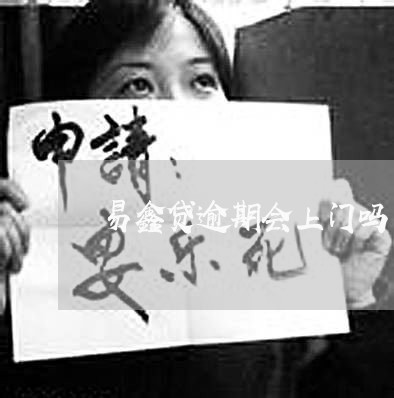 申請：
易鑫贷逾期会上门吗
安乐死